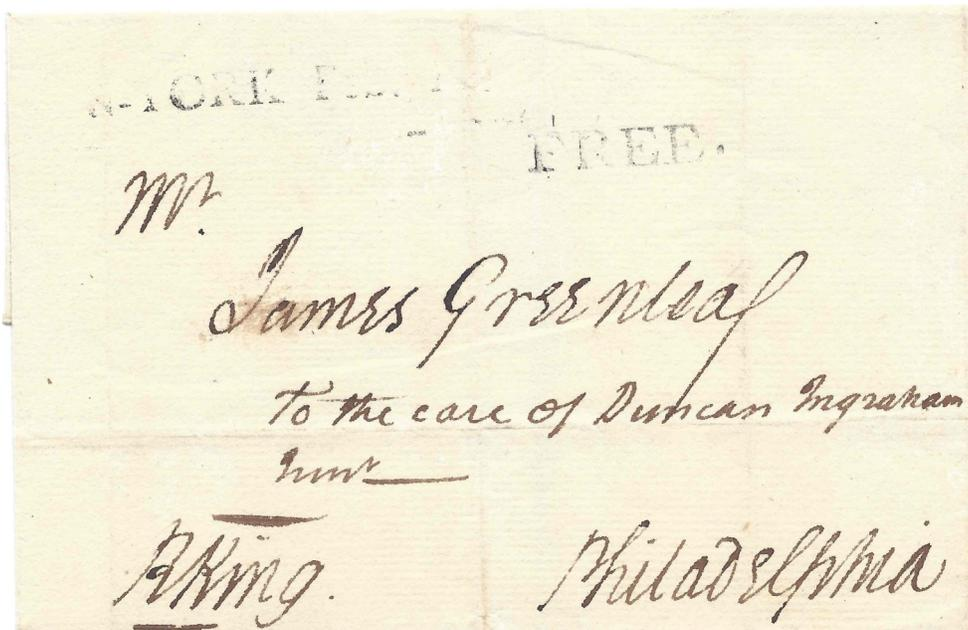 N-YORK
FREE.
Mr.
James Greenleaf
To the care of Duncan Ingraham
Junr
RKing.
Philadelphia